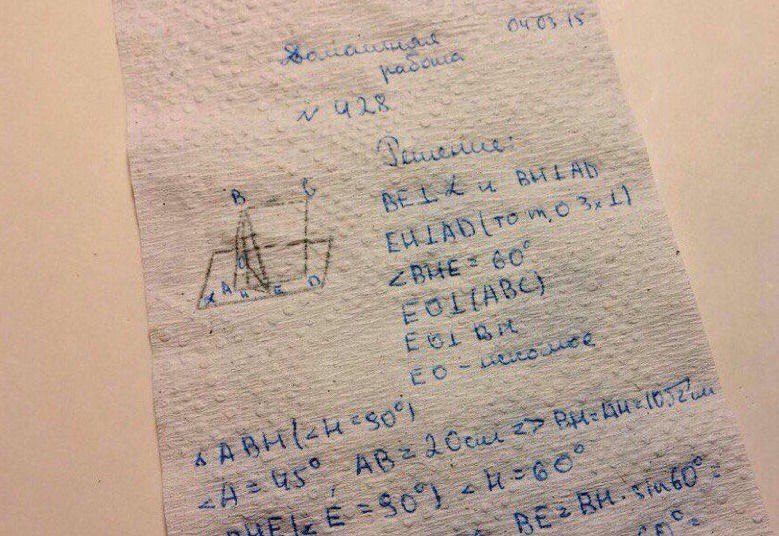 04.03 15
Домашняя
работа
№ 428
Решение:
BE⊥α и BH⊥AD
EH⊥AD (по т, о 3х⊥)
∠BHE = 60°
EO⊥(ABC)
EO⊥BH
EO - искомое
B C
O
α A H E D
△ABH (∠H = 90°)
∠A = 45°, AB = 20см => BH=AH=10√2см
BHE (∠E = 90°) ∠H = 60°
BE = BH · sin60° =